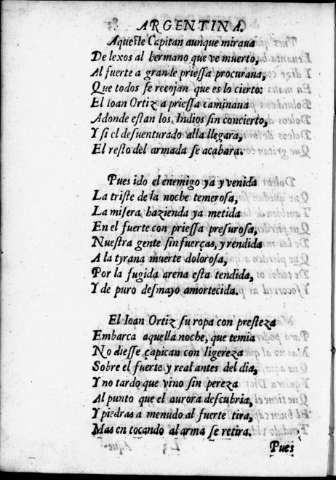 ARGENTINA.
Aqueste Capitan aunque miraua
De lexos al hermano que ve muerto,
Al fuerte a grande priessa procuraua,
Que todos se recojan que es lo cierto:
El Ioan Ortiz a priessa caminaua
Adonde estan los Indios sin concierto,
Y si el desuenturado alla llegara,
El resto del armada se acabara.
Pues ido el enemigo ya y venida
La triste de la noche temerosa,
La misera hazienda ya metida
En el fuerte con priessa presurosa,
Nuestra gente sin fuerças, y rendida
A la tyrana muerte dolorosa,
Por la fugida arena esta tendida,
Y de puro desmayo amortecida.
El Ioan Ortiz su ropa con presteza
Embarca aquella noche, que temia
No diesse capican con ligereza
Sobre el fuerte y real antes del dia,
Y no tardo que vino sin pereza
Al punto que el aurora descubria,
Y piedras a menudo al fuerte tira,
Mas en tocando al arma se retira.
Pues